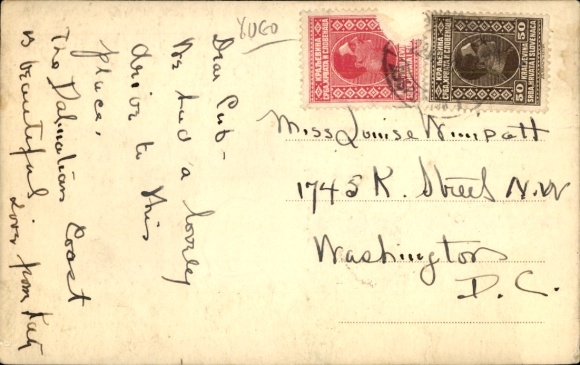 YUGO
Dear
We had a lovely
drive to this
place.
The Dalmatian Coast
is beautiful
Love from
КРАЉЕВИНА
СРБА, ХРВАТА И СЛОВЕНАЦА
КРАЉЕВИНА
СРБА, ХРВАТА И СЛОВЕНАЦА
50 50
KRALJEVINA
SRBA, HRVATA I SLOVENACA
Miss Louise
1745 K. Street N.W
Washington
D.C.